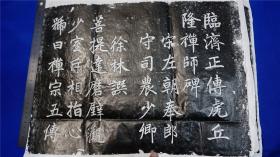 臨濟正傳虎丘
隆禪師碑
宋左朝奉郎
守司農少卿
徐林譔
菩提達磨壁觀
少室密相指心
號曰禪宗五傳